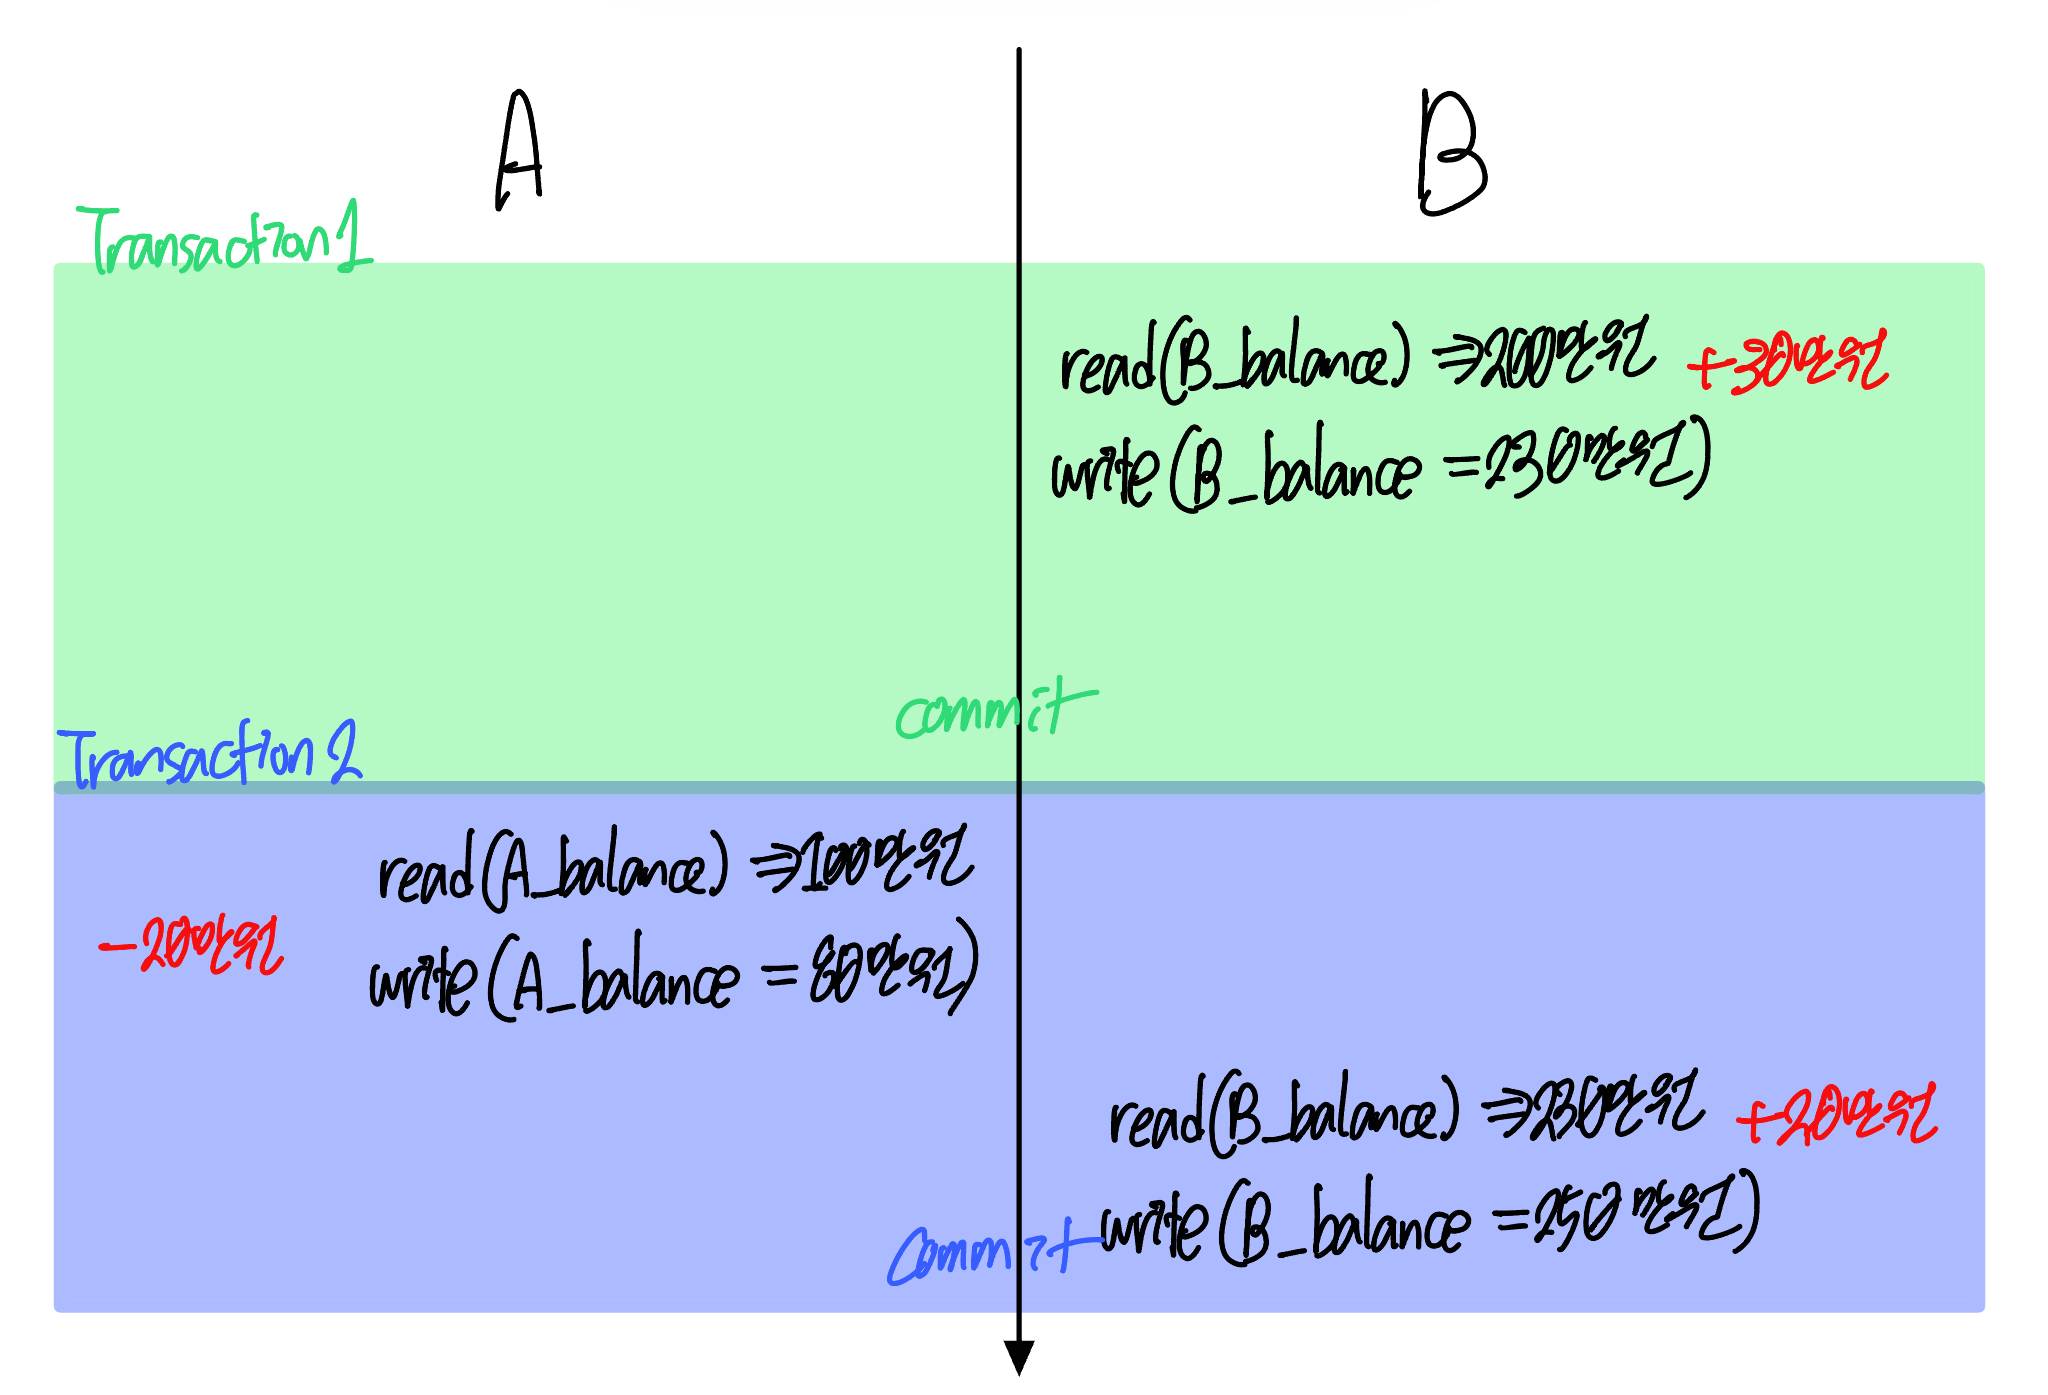 A
B
Transaction 1
read(B_balance) ⇒ 200만원 +30만원
write(B_balance = 230만원)
commit
Transaction 2
read(A_balance) ⇒ 100만원
-20만원
write(A_balance = 80만원)
read(B_balance) ⇒ 230만원 +20만원
write(B_balance = 250만원)
commit